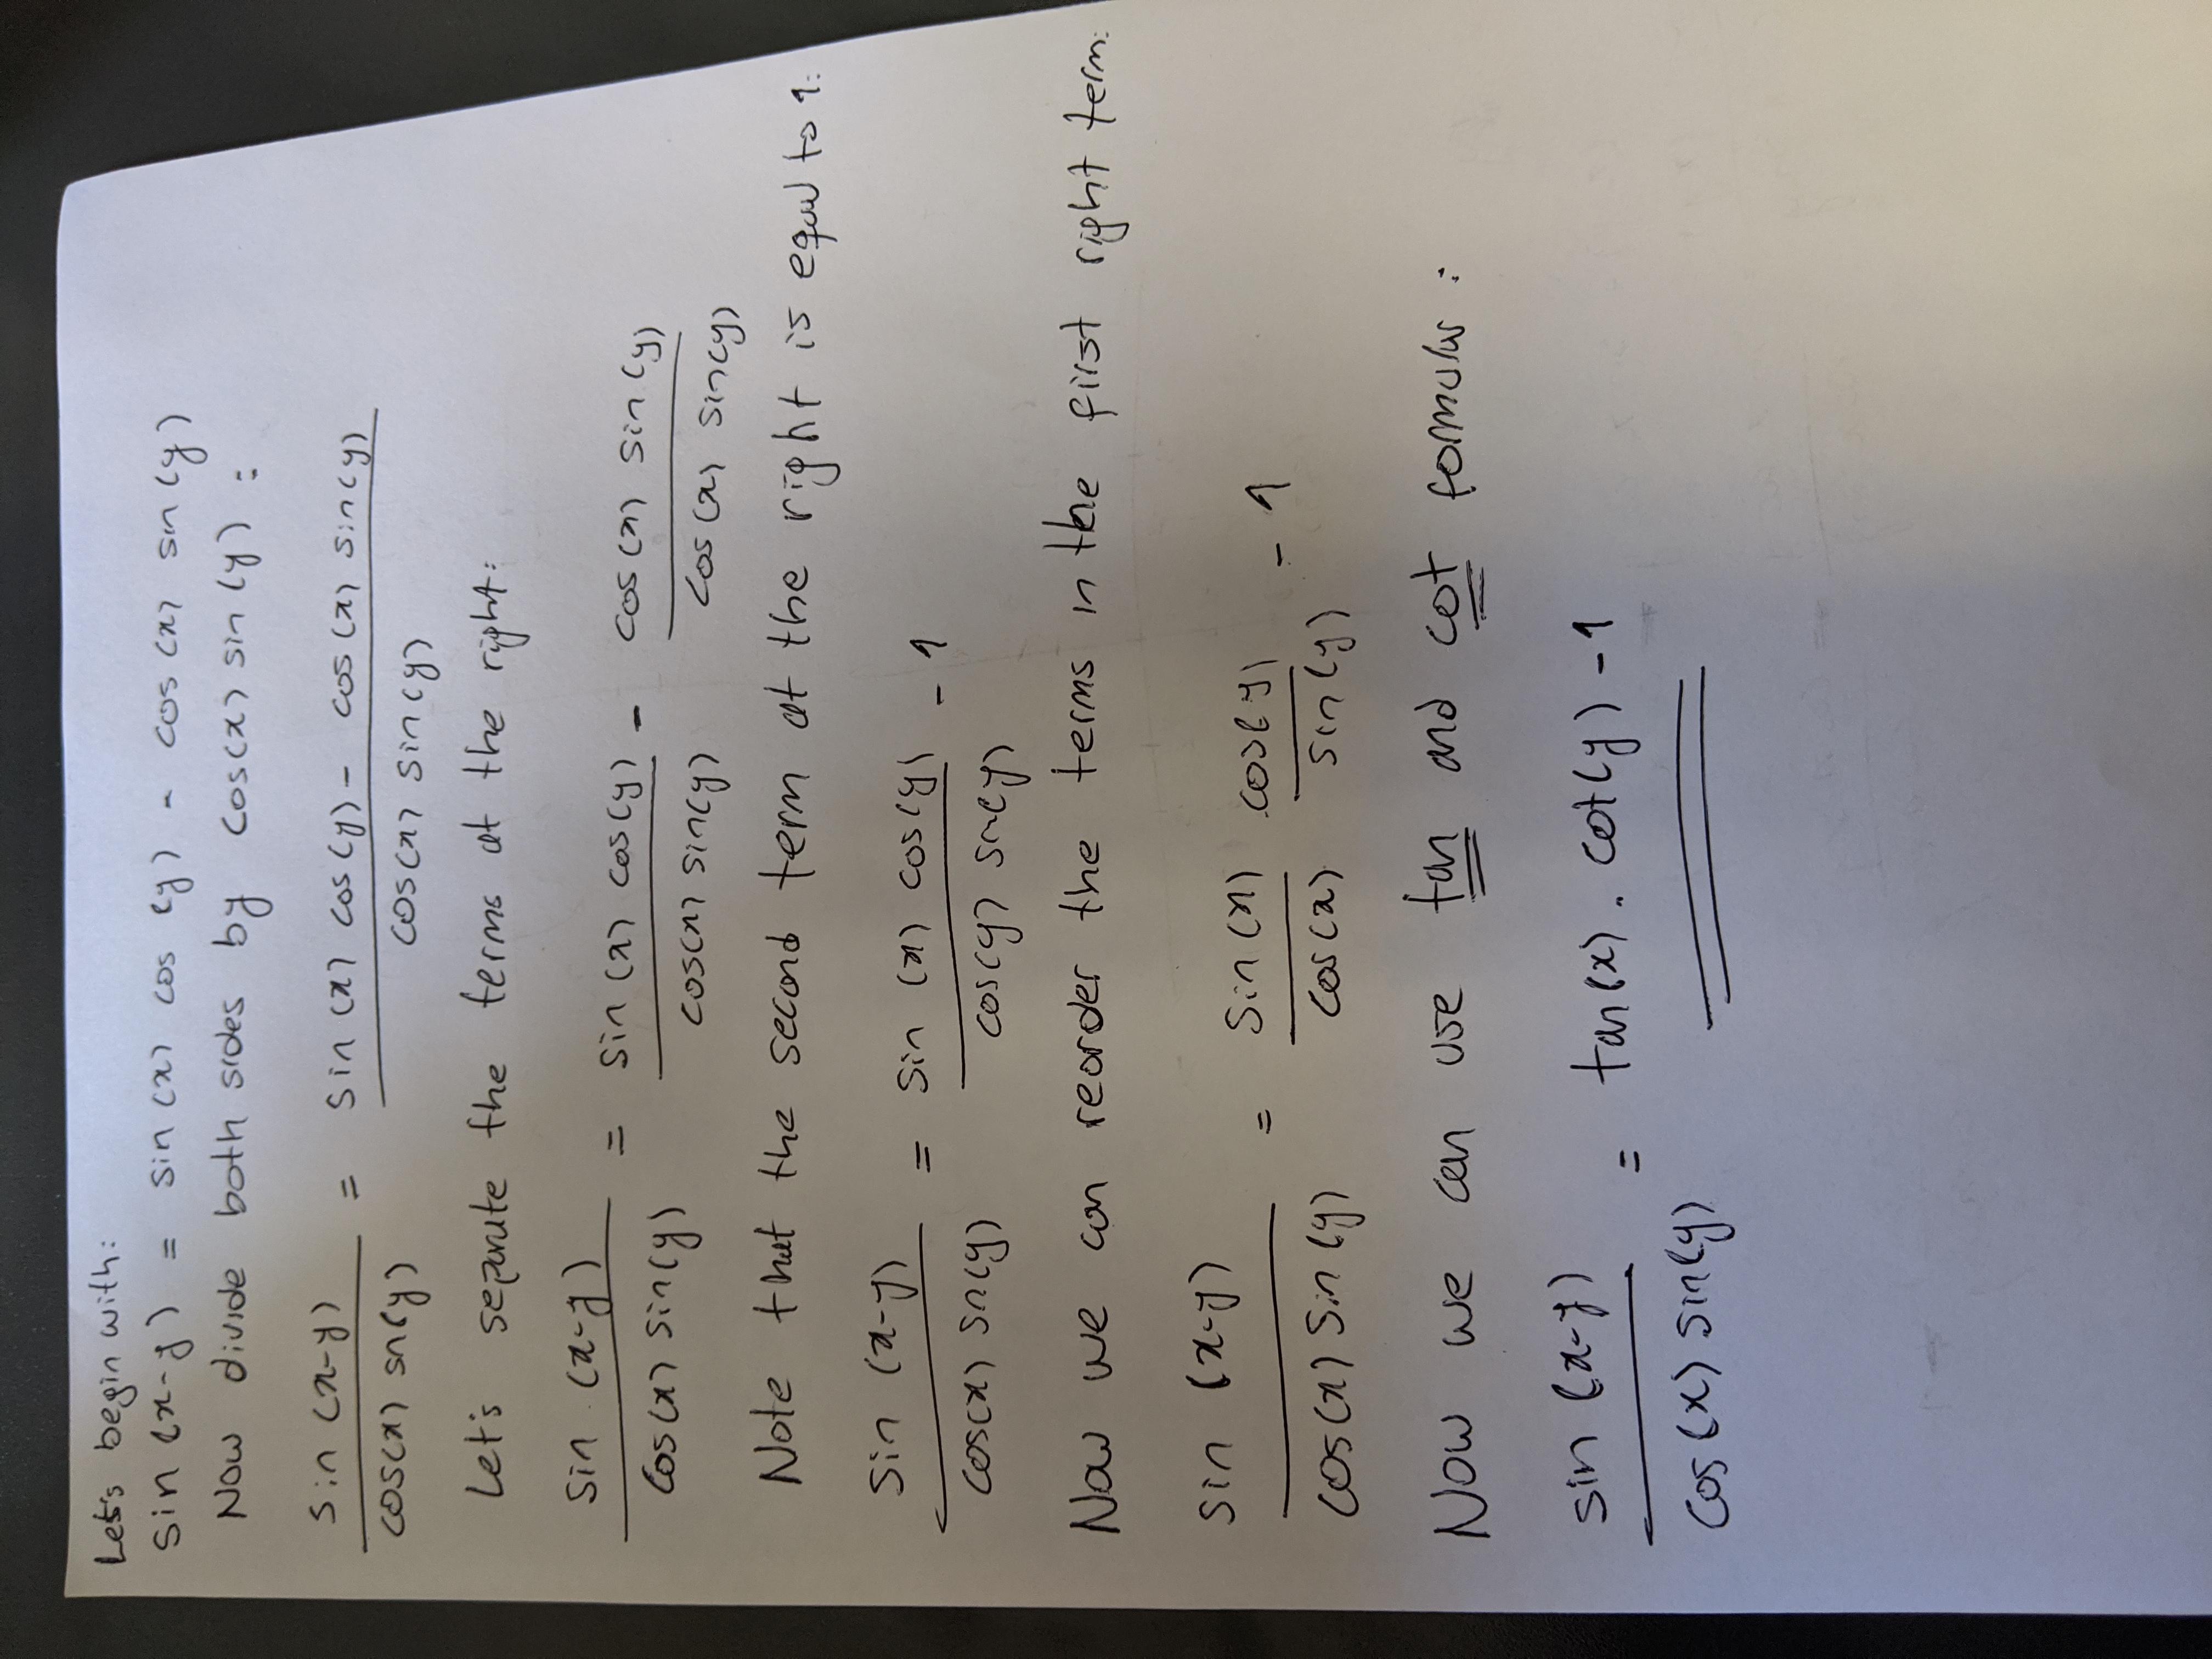 Let's begin with:
sin(x-y) = sin(x) cos(y) - cos(x) sin(y)
Now divide both sides by cos(x) sin(y) :
sin(x-y) / cos(x) sin(y) = sin(x) cos(y) - cos(x) sin(y) / cos(x) sin(y)
Let's separate the terms at the right:
sin(x-y) / cos(x) sin(y) = sin(x) cos(y) / cos(x) sin(y) - cos(x) sin(y) / cos(x) sin(y)
Note that the second term at the right is equal to 1:
sin(x-y) / cos(x) sin(y) = sin(x) cos(y) / cos(y) sin(y) - 1
Now we can reorder the terms in the first right term:
sin(x-y) / cos(x) sin(y) = sin(x) / cos(x) . cos(y) / sin(y) - 1
Now we can use tan and cot formulas :
sin(x-y) / cos(x) sin(y) = tan(x) . cot(y) - 1